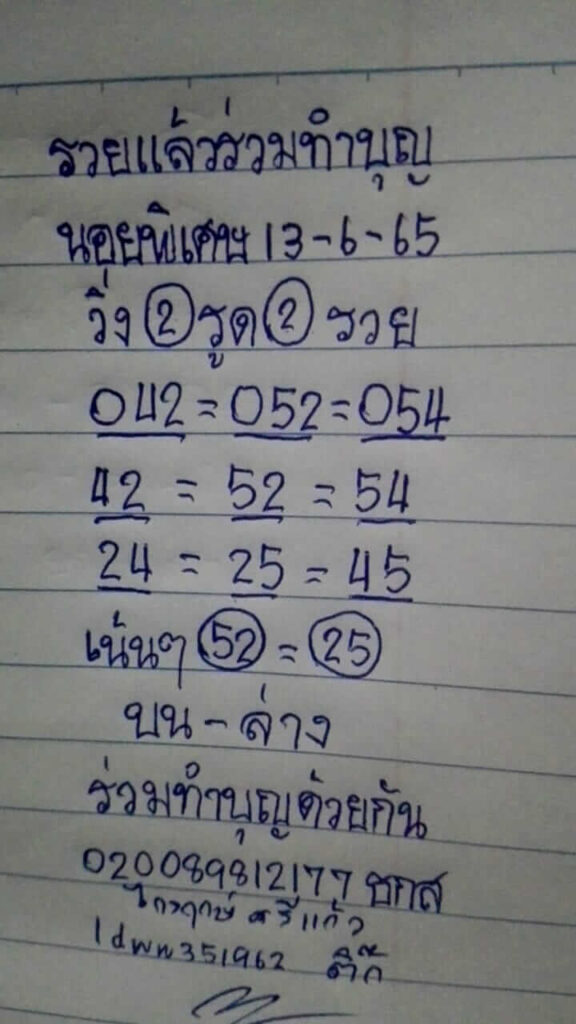 รวยแล้วร่วมทำบุญ
นอยพิเศษ 13-6-65
วิ่ง 2 รูด 2 รวย
042 = 052 = 054
42 = 52 = 54
24 = 25 = 45
เน้นๆ 52 = 25
บน - ล่าง
ร่วมทำบุญด้วยกัน
020089812177 ธกส
ไกรฤกษ์ ศรีแก้ว
ldwn351962 ติ๊ก